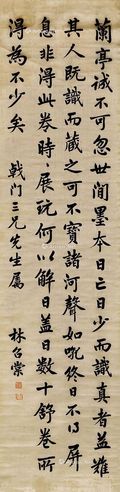 蘭亭誠不可忽世間墨本日亡日少而識真者益難
其人既識而藏之可不寶諸河聲如吼終日不得屏
息非得此卷時時展玩何以解日蓋日數十舒卷所
得為不少矣
戟門三兄先生屬
林召棠